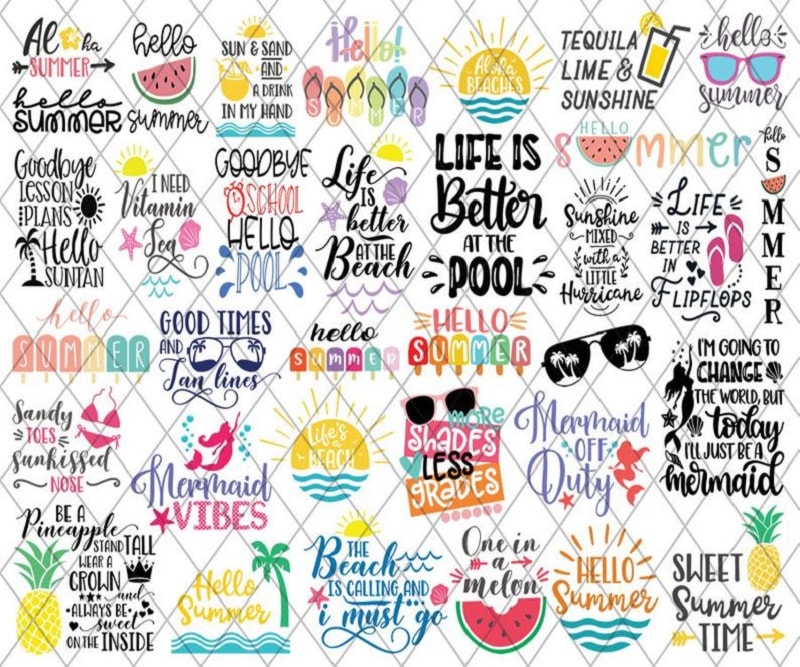 Aloha
SUMMER
hello
summer
hello
summer
SUN & SAND
AND
A DRINK
IN MY HAND
Hello!
SUMMER
Aloha
BEACHES
TEQUILA
LIME &
SUNSHINE
hello
summer
Goodbye
LESSON
PLANS
Hello
SUNTAN
I NEED
Vitamin
Sea
GOODBYE
SCHOOL
HELLO
POOL
Life
IS
better
AT THE
Beach
LIFE IS
Better
AT THE
POOL
HELLO
SUMMER
Sunshine
MIXED
with a
LITTLE
Hurricane
LIFE
IS
BETTER
IN
FLIPFLOPS
hello
S
U
M
M
E
R
hello
SUMMER
GOOD TIMES
AND
Tan lines
hello
summer
HELLO
SUMMER
I'M GOING TO
CHANGE
THE WORLD, BUT
today
I'LL JUST BE A
mermaid
Sandy
TOES
sunkissed
NOSE
Mermaid
VIBES
Life's
A
BEACH
MORE
SHADES
LESS
GRADES
Mermaid
OFF
Duty
BE A
Pineapple
STAND TALL
WEAR A
CROWN
and
ALWAYS BE
sweet
ON THE INSIDE
Hello
Summer
THE
Beach
IS CALLING AND
i must go
One in
a
melon
HELLO
Summer
SWEET
Summer
TIME